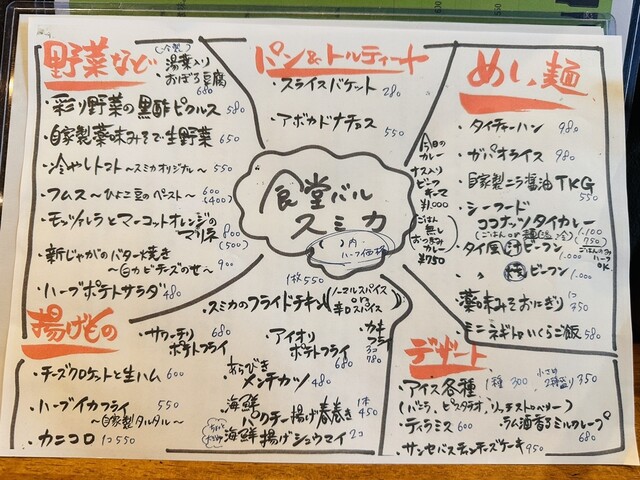 野菜など
(冷製)
湯葉入り
・おぼろ豆腐
680
・彩り野菜の黒酢ピクルス 580
・自家製薬味みそで生野菜 650
・冷やしトマト〜スミカオリジナル〜 550
・フムス〜ひよこ豆のペースト〜 600
(400)
・モッツァレラとマーコットオレンジの
マリネ 800
(500)
・新じゃがのバター焼き
〜白カビチーズのせ〜 900
・ハーブポテトサラダ 480
パン&トルティーヤ
・スライスバケット 280
・アボカドナチョス 550
食堂バル
スミカ
( )内、
ハーフ価格
今日の
カレー
ナス入り
ビーフ
キーマ
¥1,000
ごはん
無し
おつまみ
カレー
¥780
めし、麺
・タイチャーハン 980
・ガパオライス 980
自家製ニラ醤油TKG
550
・シーフード
ココナッツタイカレー
1,100
(750)
・タイ風汁ビーフン
1,000
・〃 ビーフン
1,000
OK
・薬味みそおにぎり 1コ 350
・ミニネギトロいくらご飯 580
揚げもの
1枚 550
・スミカのフライドチキン
(ノーマルスパイス
or
辛口スパイス)
・サワーチリ
ポテトフライ
680
・アイオリ
ポテトフライ
680
・カキ
フライ
3コ
780
・チーズクロケットと生ハム 600
・あらびき
メンチカツ 480
・ハーブイカフライ 550
〜自家製タルタル〜
・海鮮
パクチー揚げ春巻き
1本
450
・カニコロ 1コ550
・海鮮揚げシュウマイ 2コ
デザート
・アイス各種 1種 300
小さめ
2種盛り 350
(バニラ、ピスタチオ、リッチストロベリー)
・ティラミス 600
・ラム酒香るミルクレープ
680
・サンセバスチャンチーズケーキ 950